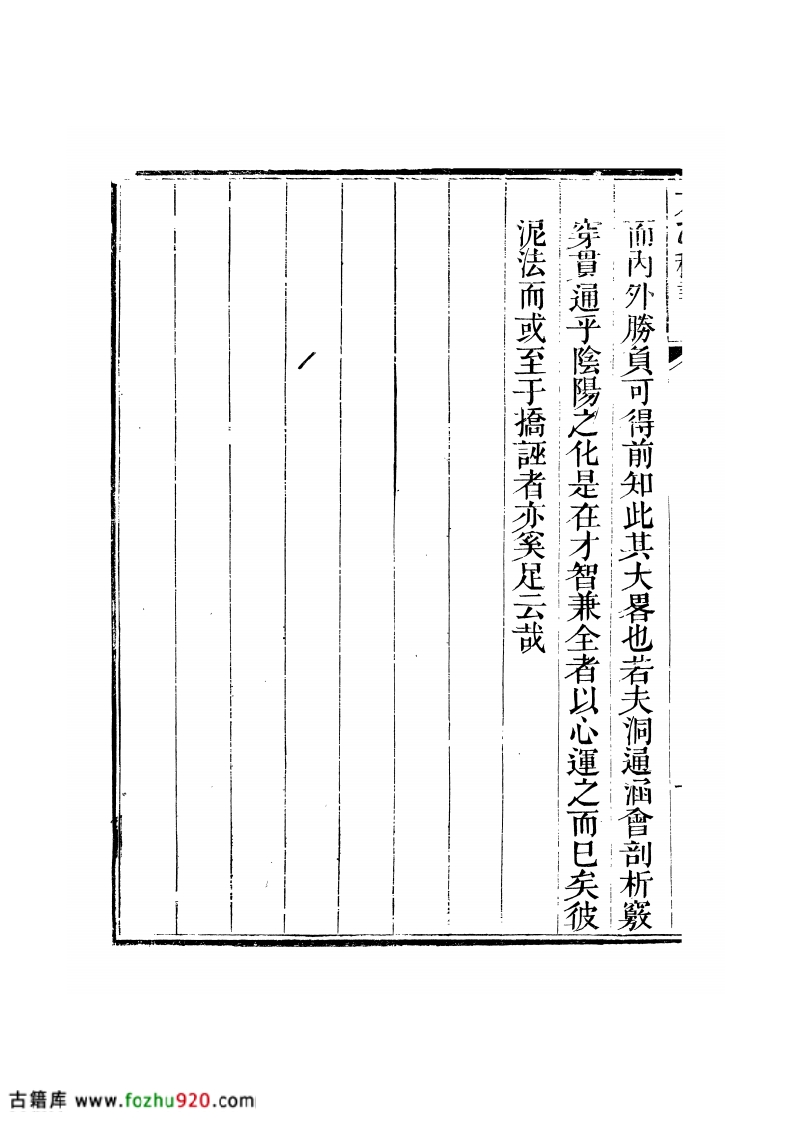 而內外勝負可得前知此其大畧也若夫洞通涵會剖析竅
穿貫通乎陰陽之化是在才智兼全者以心運之而已矣彼
泥法而或至于撟誣者亦奚足云哉
古籍库 www.fozhu920.com